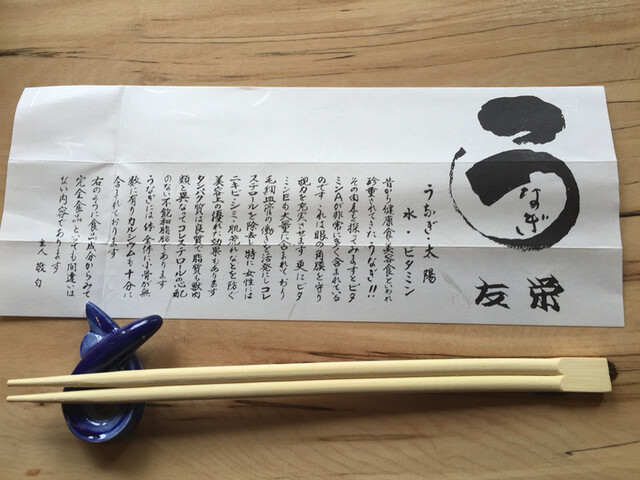 うなぎ
栄
友
うなぎ・太陽
水・ビタミン
昔から健康食・美容食といわれ
珍重されてきたうなぎ!!
その由来を探ってみますとビタ
ミンAが非常に多く含まれている
のです これは眼の角膜を守り
視力を充実させます 更にビタ
ミンEも大量に含まれており
毛細血管の働きを活発にしコレ
ステロールを除去し特に女性には
ニキビ・シミ・肌荒れなどを防ぐ
美容上の優れた効果もあります
タンパク質は良質で脂質も獣肉
類と異なってコレステロールの心配
のない不飽和脂肪であります
うなぎには体全体に小骨が無
数に有りカルシウムも十分に
含まれております
右のように食品成分からみて
完全食品といっても間違いは
ない内容であります
主人 敬白